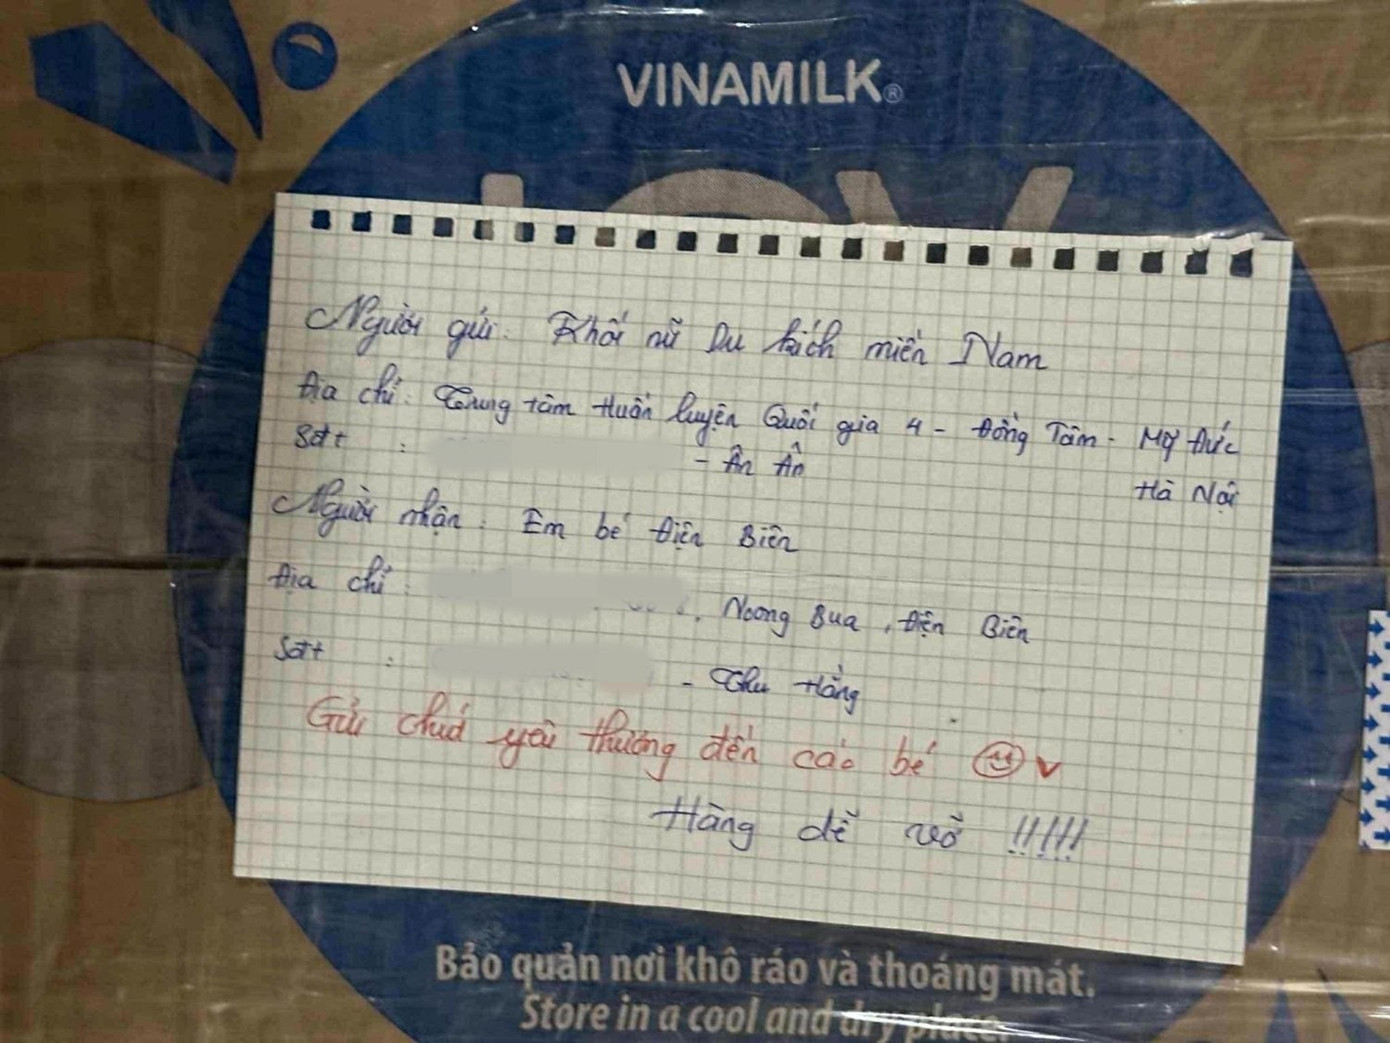 VINAMILK®
Người gửi: Khối nữ Du kích miền Nam
Địa chỉ: Trung tâm Huấn luyện Quối gia 4 - Đồng Tâm - Mỹ Đức
Hà Nội
Sđt : - Ân Ân
Người nhận: Em bé Điện Biên
Địa chỉ: , Noong Bua, Điện Biên
Sđt : - Thu Hằng
Gửi chút yêu thương đến các bé
Hàng dễ vỡ !!!!!
Bảo quản nơi khô ráo và thoáng mát.
Store in a cool and dry place.